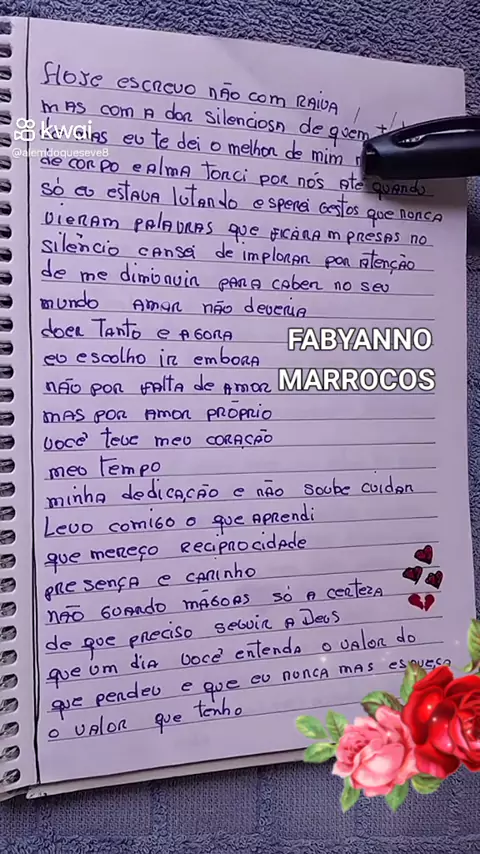 Hoje escrevo não com RAIVA
mas com a dor silenciosa de quem
kwai
eu te dei o melhor de mim
@alemdoqueseve8
de corpo e alma torci por nós até quando
só eu estava lutando esperei gestos que nunca
vieram palavras que ficaram presas no
silêncio cansei de implorar por atenção
de me diminuir para caber no seu
mundo amar não deveria
doer tanto e agora
FABYANNO
eu escolho ir embora
MARROCOS
não por falta de amor
mas por amor próprio
você teve meu coração
meu tempo
minha dedicação e não soube cuidar
Levo comigo o que aprendi
que mereço reciprocidade
presença e carinho
não guardo mágoas só a certeza
de que preciso seguir a Deus
que um dia você entenda o valor do
que perdeu e que eu nunca mas esqueça
o valor que tenho